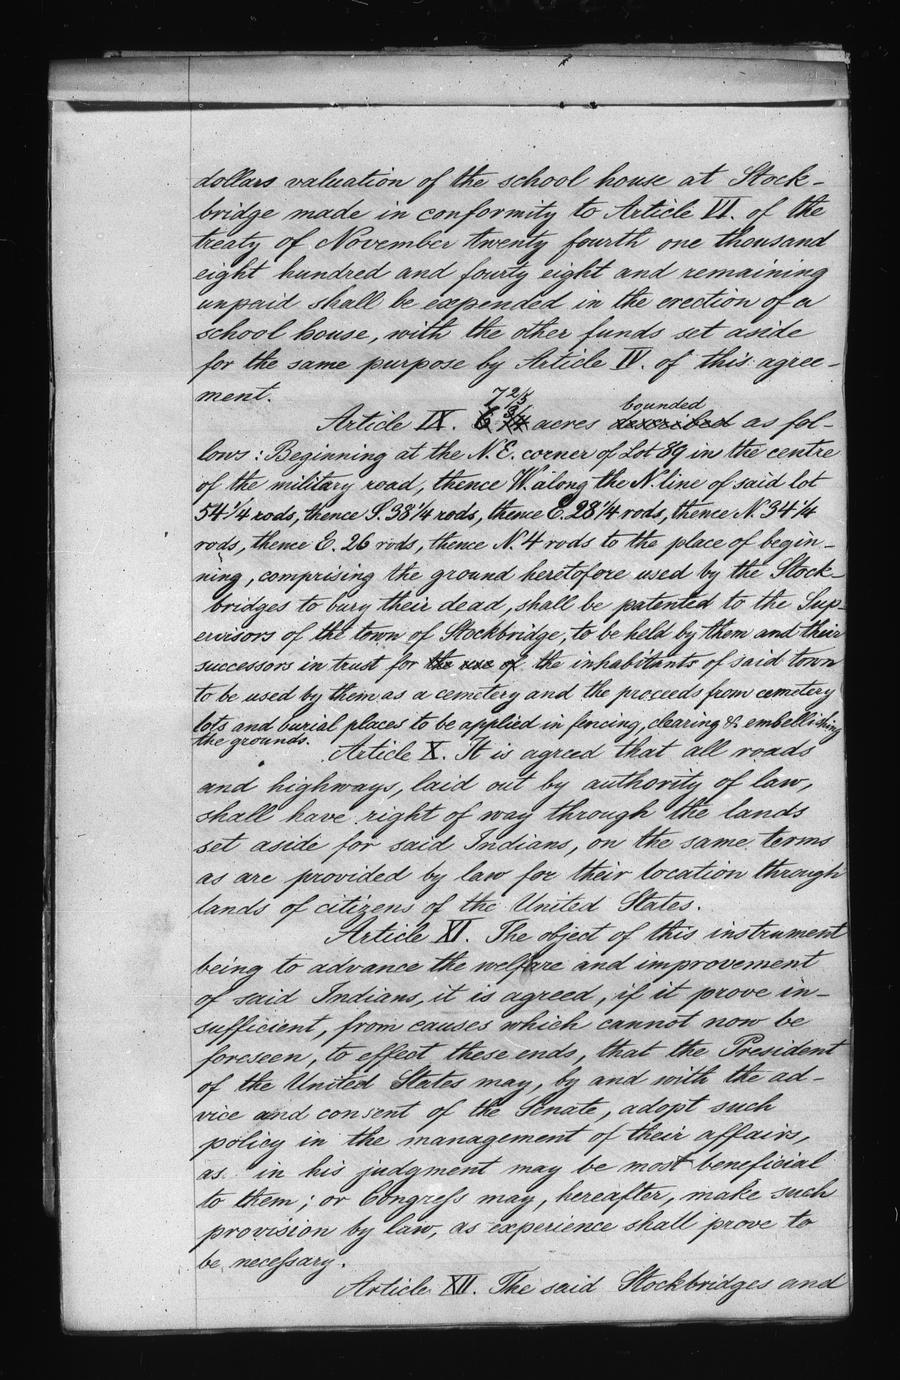 dollars valuation of the school house at Stock-
bridge made in conformity to Article VI. of the
treaty of November twenty fourth one thousand
eight hundred and fourty eight and remaining
unpaid shall be expended in the erection of a
school house, with the other funds set aside
for the same purpose by Article IV. of this agree-
ment.
bounded
Article IX. 6 3/4 acres described as fol-
lows: Beginning at the N.E. corner of Lot 89 in the centre
of the military road, thence W. along the N. line of said lot
54 1/4 rods, thence S. 38 1/4 rods, thence E. 28 1/4 rods, thence N. 34 1/4
rods, thence E. 26 rods, thence N. 4 rods to the place of begin-
ning, comprising the ground heretofore used by the Stock-
bridges to bury their dead, shall be patented to the Sup-
ervisors of the town of Stockbridge, to be held by them and their
successors in trust for the use of the inhabitants of said town
to be used by them as a cemetery and the proceeds from cemetery
lots and burial places to be applied in fencing, clearing & embellishing
the grounds.
Article X. It is agreed that all roads
and highways, laid out by authority of law,
shall have right of way through the lands
set aside for said Indians, on the same terms
as are provided by law for their location through
lands of citizens of the United States.
Article XI. The object of this instrument
being to advance the welfare and improvement
of said Indians, it is agreed, if it prove in-
sufficient, from causes which cannot now be
foreseen, to effect these ends, that the President
of the United States may, by and with the ad-
vice and consent of the Senate, adopt such
policy in the management of their affairs,
as in his judgment may be most beneficial
to them; or Congress may, hereafter, make such
provision by law, as experience shall prove to
be necessary.
Article XII. The said Stockbridges and